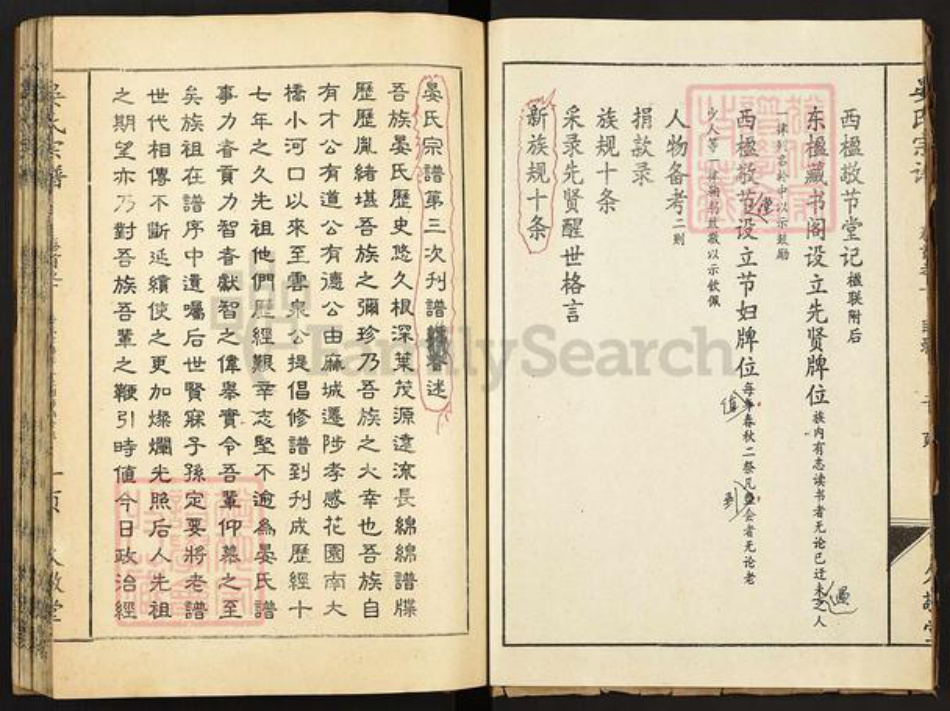 西楹敬节堂记 楹联附后
东楹藏书阁设立先贤牌位 族内有志读书者无论已迁未迁之人
一律列名於中以示鼓励
西楹敬节堂设立节妇牌位 每年春秋二祭凡与会者无论老
少人等一律鞠躬致敬以示钦佩
人物备考 二则
捐款录
族规十条
采录先贤醒世格言
新族规十条
晏氏宗譜第三次刋譜 述
吾族晏氏歷史悠久根深葉茂源遠流長綿綿譜牒
歷歷胤緒堪吾族之彌珍乃吾族之大幸也吾族自
有才公有道公有德公由麻城遷陟孝感花園南大
橋小河口以來至雲泉公提倡修譜到刋成歷經十
七年之久先祖他們歷經艱辛志堅不逾為晏氏譜
事力者貢力智者獻智之偉舉實令吾輩仰慕之至
矣族祖在譜序中遺囑后世賢寐子孫定要將老譜
世代相傳不斷延續使之更加燦爛光照后人先祖
之期望亦乃對吾族吾輩之鞭引時值今日政治經